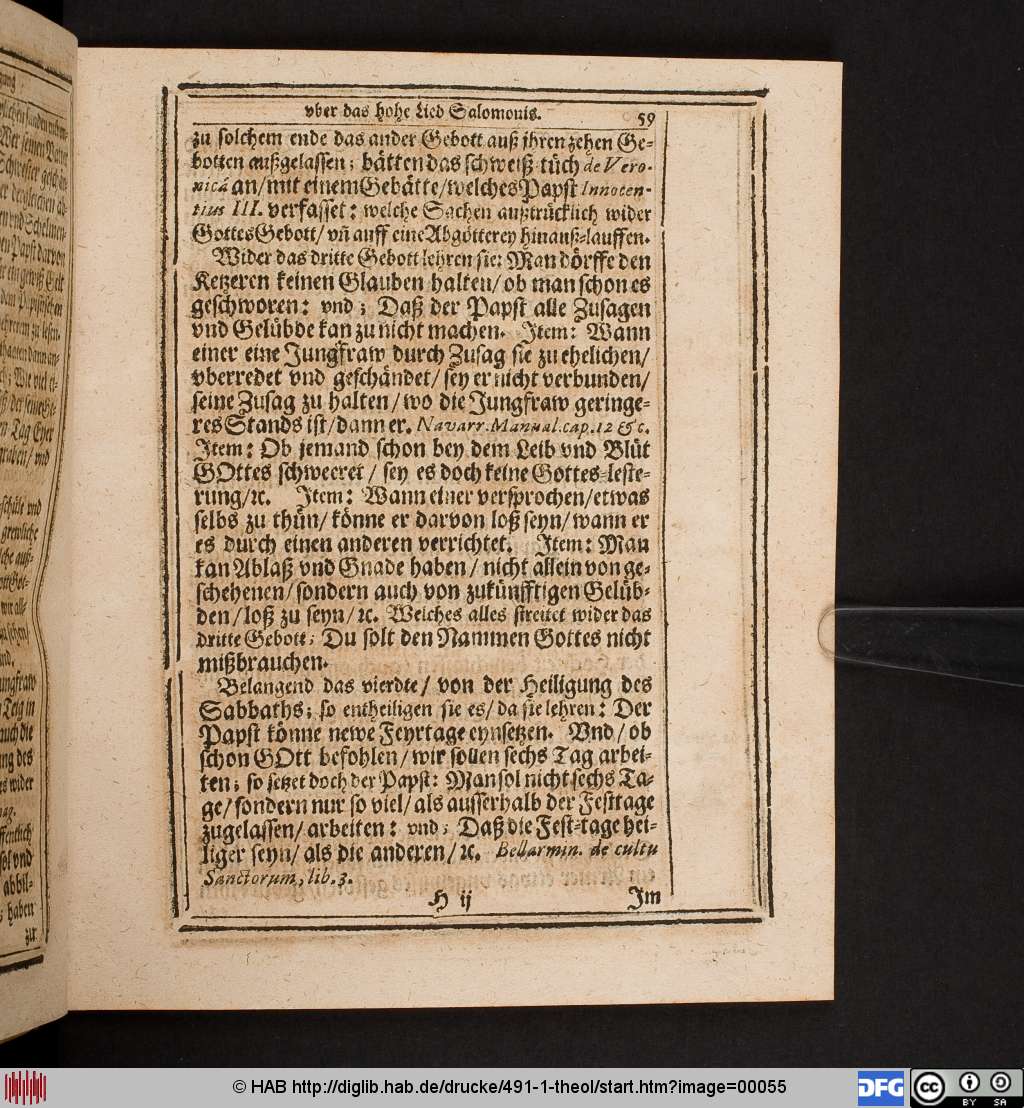 vber das hohe Lied Salomonis. 59
zu solchem ende das ander Gebott auß jhren zehen Ge-
botten außgelassen; bätten das schweiß-tüch de Vero-
nicâ an/ mit einem Gebätte/ welches Papst Innocen-
tius III. verfasset: welche Sachen außtrücklich wider
Gottes Gebott/ vñ auff eine Abgötterey hinauß-lauffen.
Wider das dritte Gebott lehren sie: Man dörffe den
Ketzeren keinen Glauben halten/ ob man schon es
geschworen: vnd; Daß der Papst alle Zusagen
vnd Gelübde kan zu nicht machen. Item: Wann
einer eine Jungfraw durch Zusag sie zu ehelichen/
vberredet vnd geschändet/ sey er nicht verbunden/
seine Zusag zu halten/ wo die Jungfraw geringe-
res Stands ist/ dann er. Navarr. Manual. cap. 12 &c.
Item: Ob jemand schon bey dem Leib vnd Blüt
GOttes schweeret/ sey es doch keine Gottes-leste-
rung/ ꝛc. Item: Wann einer versprochen/ etwas
selbs zu thün/ könne er darvon loß seyn/ wann er
es durch einen anderen verrichtet. Item: Man
kan Ablaß vnd Gnade haben/ nicht allein von ge-
schehenen/ sondern auch von zukünfftigen Gelüb-
den/ loß zu seyn/ ꝛc. Welches alles streitet wider das
dritte Gebott; Du solt den Nammen Gottes nicht
mißbrauchen.
Belangend das vierdte/ von der Heiligung des
Sabbaths; so entheiligen sie es/ da sie lehren: Der
Papst könne newe Feyrtage eynsetzen. Vnd/ ob
schon GOtt befohlen/ wir sollen sechs Tag arbei-
ten; so setzet doch der Papst: Man sol nicht sechs Ta-
ge/ sondern nur so viel/ als ausserhalb der Festtage
zugelassen/ arbeiten: vnd; Daß die Fest-tage hei-
liger seyn/ als die anderen/ ꝛc. Bellarmin. de cultu
Sanctorum, lib. 3.
H ij Im
© HAB http://diglib.hab.de/drucke/491-1-theol/start.htm?image=00055
DFG cc BY SA